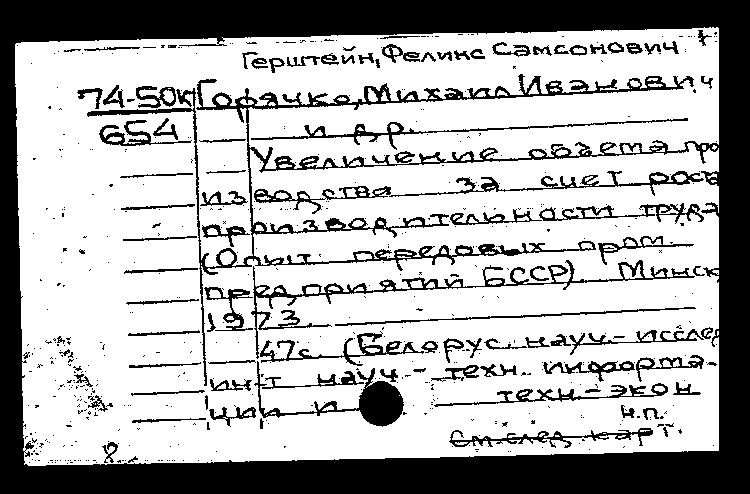 Герштейн, Феликс Самсонович
74-50к Горячко, Михаил Иванович
654 и др.
Увеличение объема про
изводства за счет роста
производительности труда
(Опыт передовых пром.
предприятий БССР). Минск
1973.
47с. (Белорус. науч.- исслед
ин-т науч.- техн. информа-
ции и техн.- экон
н.п.
См. след. карт.
8